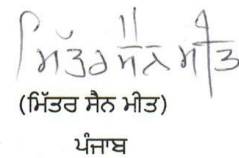 ਮਿੱਤਰ ਸੈਨ ਮੀਤ
(ਮਿੱਤਰ ਸੈਨ ਮੀਤ)
ਪੰਜਾਬ